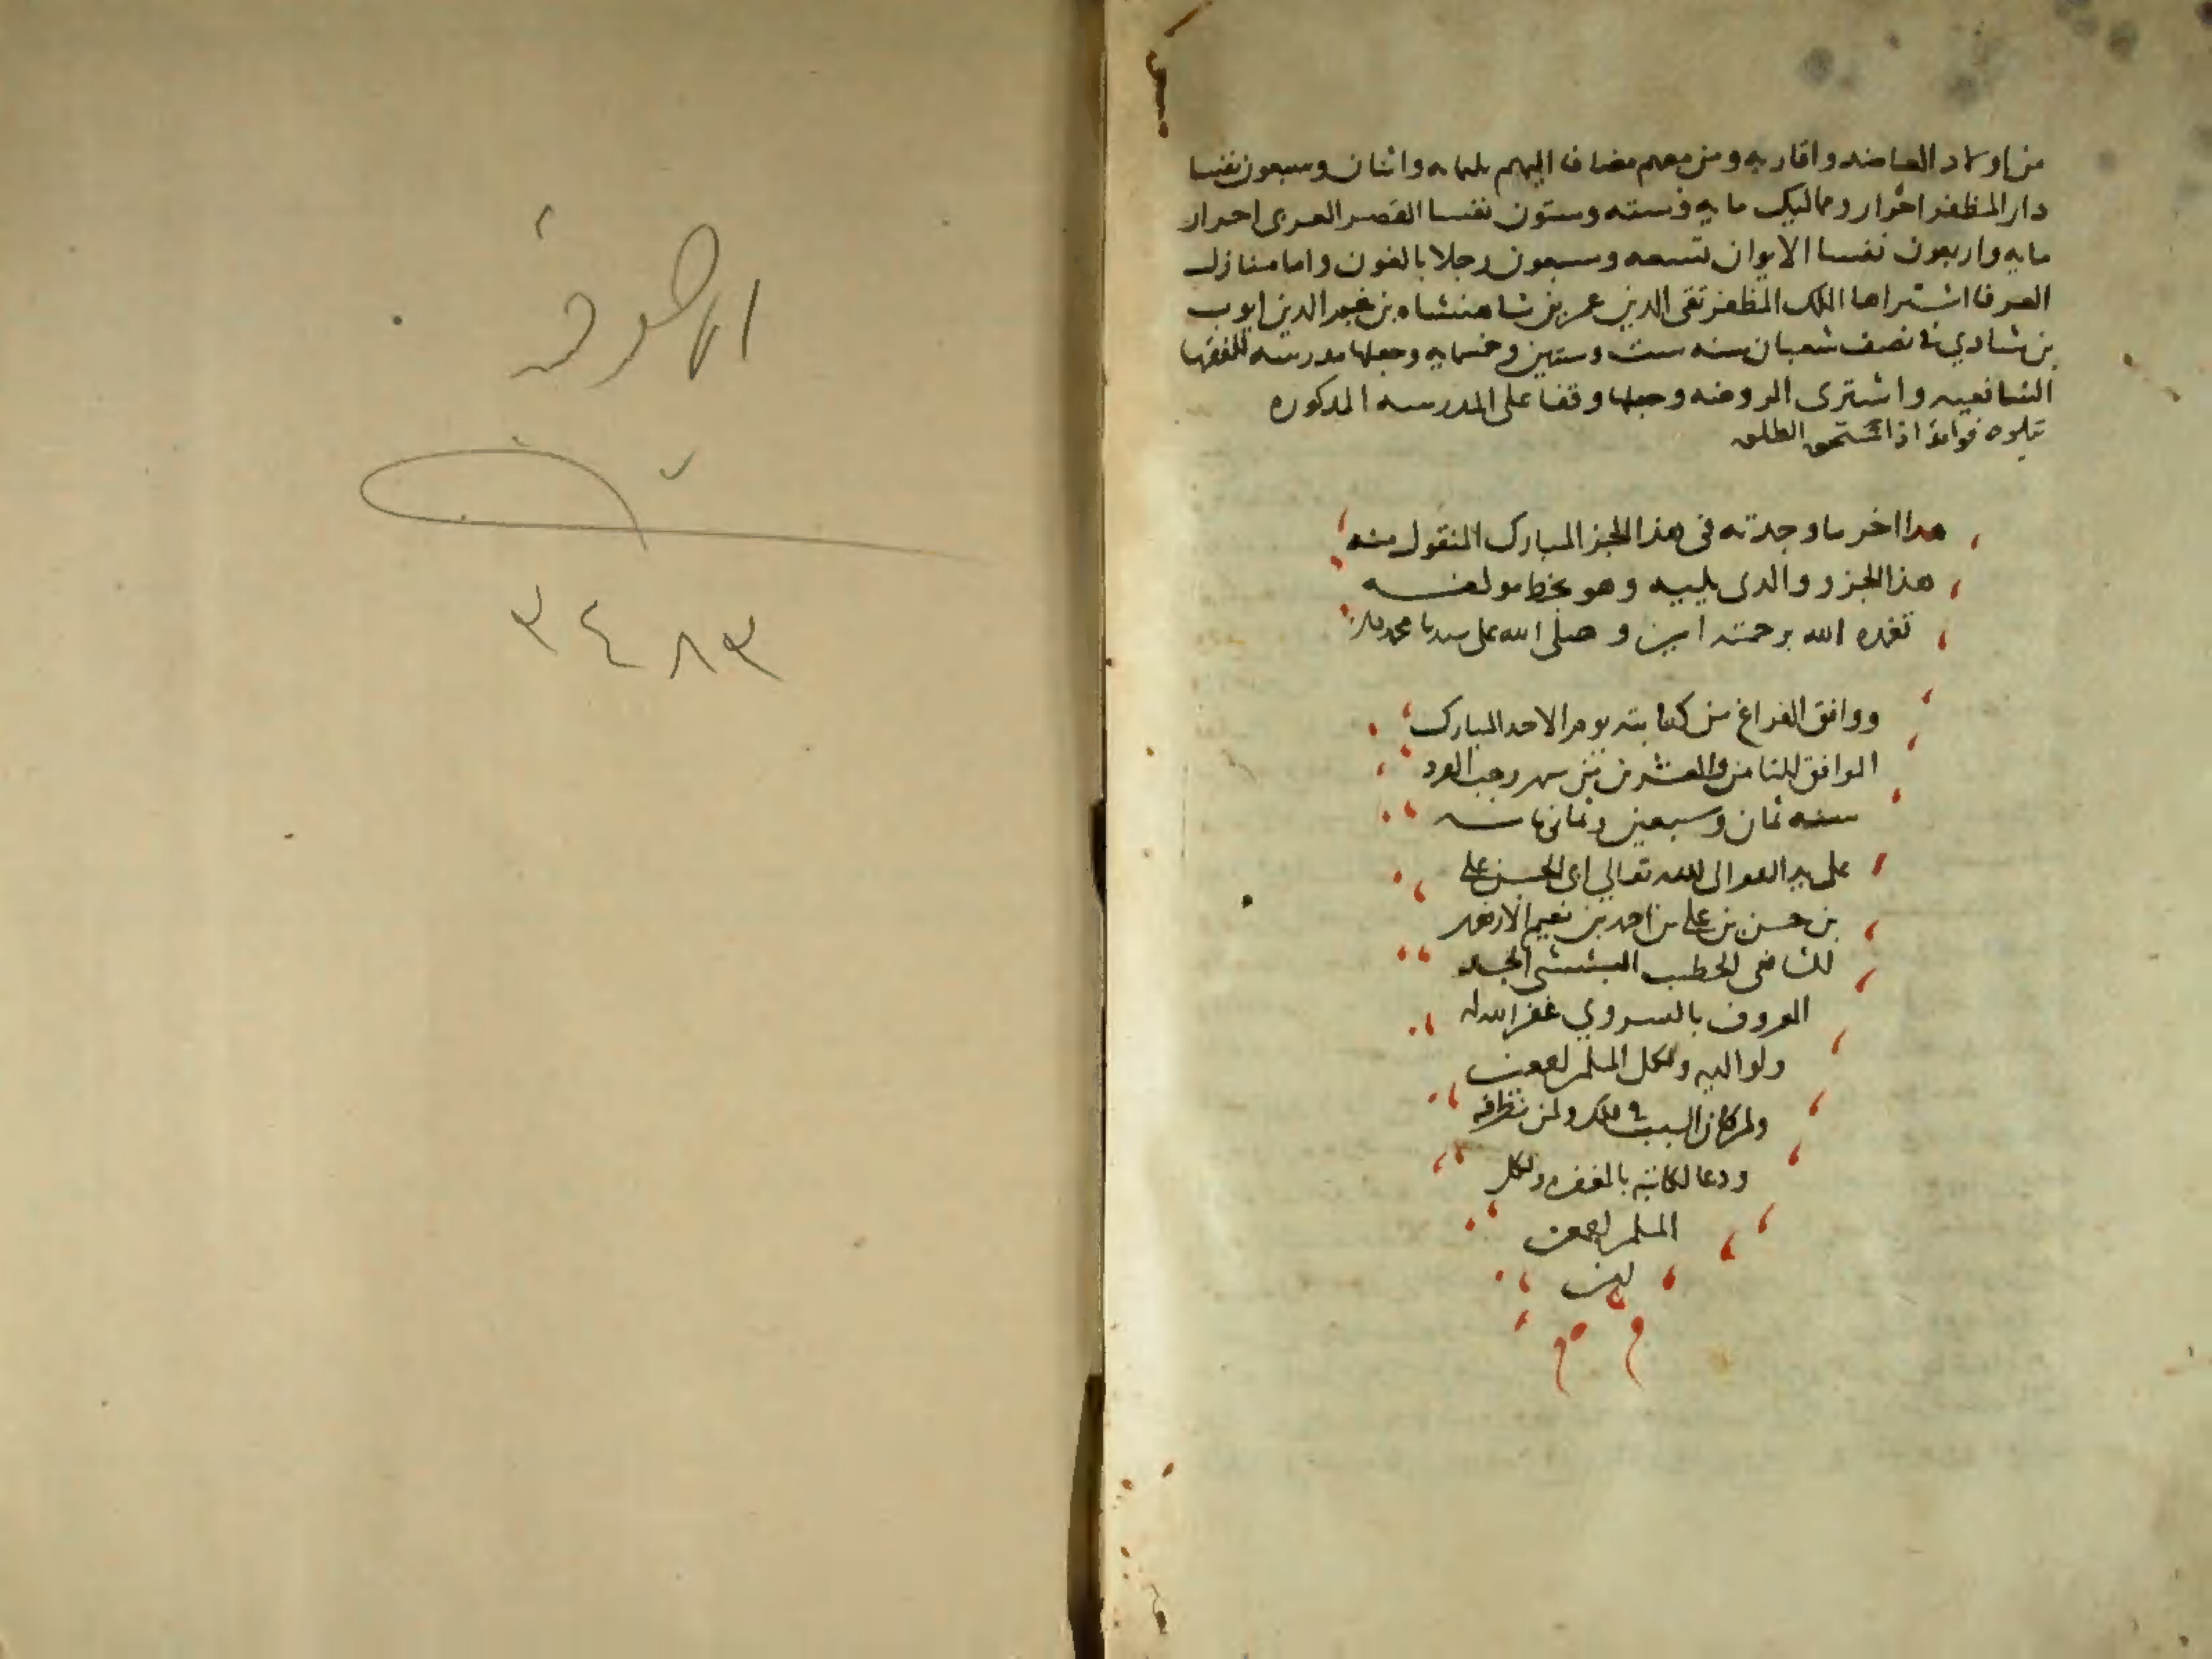 من اولاد العاضد واقاربه ومن معهم مضاف اليهم ثلثمايه واثنان وسبعون نفسا
دار المظفر احرار ومماليك مايه وسته وستون نفسا القصر الغربى احرار
مايه واربعون نفسا الايوان تسعه وسبعون رجلا بالغون واما منازل
العز فاشتراها الملك المظفر تقى الدين عمر بن شاهنشاه بن نجم الدين ايوب
بن شادي فى نصف شعبان سنه ست وستين وخمسمايه وجعلها مدرسه للفقها
الشافعيه واشترى الروضه وجعلها وقفا على المدرسه المذكوره
هذا اخر ما وجدته فى هذا الجز المبارك المنقول منه
هذا الجزو والذى يليه وهو بخط مولفه
تغمده الله برحمته امين وصلى الله على سيدنا محمد
ووافق الفراغ من كتابته يوم الاحد المبارك
الموافق للثامن والعشرين من شهر رجب الفرد
سنه ثمان وسبعين وثمانمايه
على يد الفقير الى الله تعالى ابى الحسن على
بن حسن بن على بن احمد بن نعيم الازهرى
الشافعى الخطيب
المعروف بالسروي غفر الله له
ولوالديه ولكل المسلمين اجمعين
ولمن كان السبب فى ذلك ولمن نظر فيه
ودعا لكاتبه بالمغفره ولكل
المسلمين اجمعين
امين
٣٤٨٣